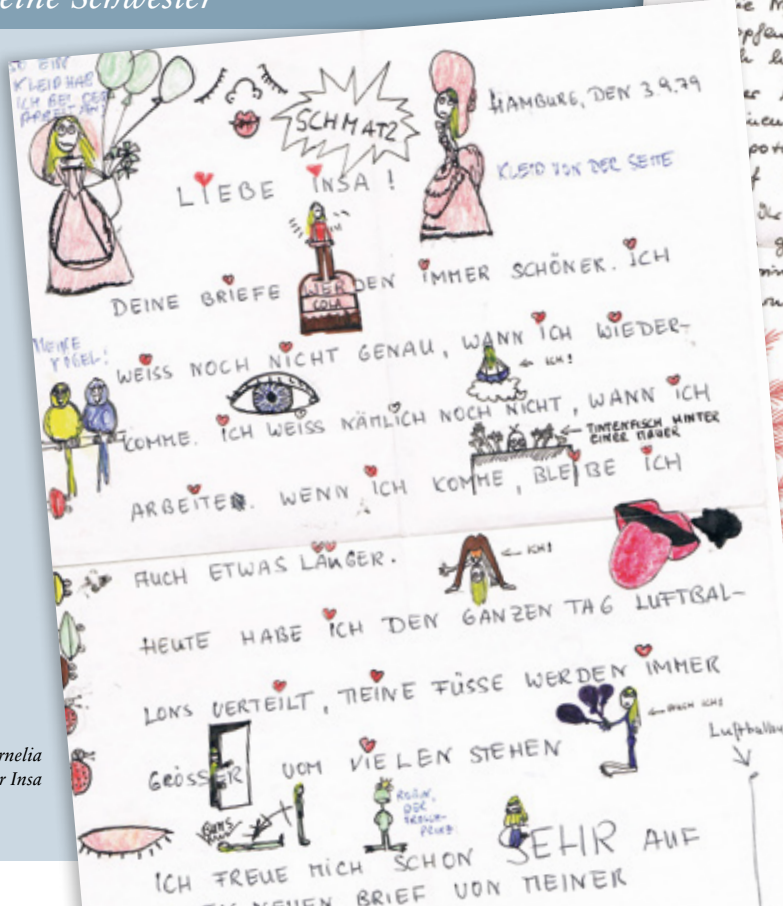 eine Schwester
SO EIN
KLEID HAB
ICH BEI DER
ARBEIT AN!
SCHMATZ
HAMBURG, DEN 3.9.79
KLEID VON DER SEITE
LIEBE INSA!
DEINE BRIEFE WERDEN IMMER SCHÖNER. ICH
COLA
MEINE
VÖGEL:
WEISS NOCH NICHT GENAU, WANN ICH WIEDER-
← ICH!
KOMME. ICH WEISS NÄMLICH NOCH NICHT, WANN ICH
← TINTENFISCH HINTER
EINER MAUER
ARBEITE. WENN ICH KOMME, BLEIBE ICH
AUCH ETWAS LÄNGER.
← ICH!
HEUTE HABE ICH DEN GANZEN TAG LUFTBAL-
LONS VERTEILT, MEINE FÜSSE WERDEN IMMER
← AUCH ICH!
GRÖSSER VOM VIELEN STEHEN
Luftballon
rnelia
r Insa
BUMS
ROBIN,
DER
FROSCH-
PRINZ
ICH FREUE MICH SCHON SEHR AUF
NEUEN BRIEF VON MEINER